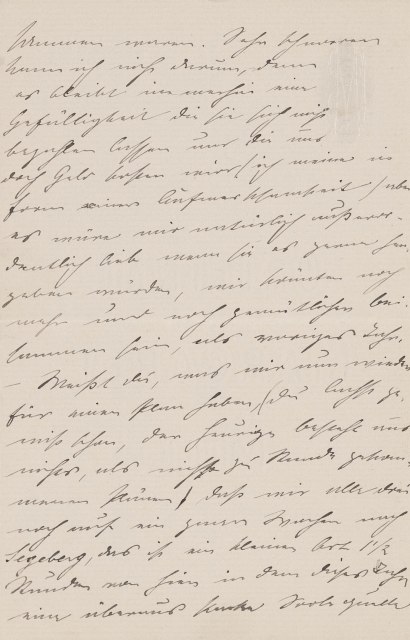 kommen waren. Sehr schweren
kann ich nicht darum, denn
es bleibt immerhin eine
Gefälligkeit die sie sich nicht
bezahlen lassen und die uns
doch Geld kosten wird (ich meine in
Form einer Aufmerksamkeit) aber
es wäre mir natürlich außeror-
dentlich lieb wenn sie es gerne her
geben würden, wir könnten noch
mehr und noch gemütlicher bei-
sammen sein, als voriges Jahr.
— Weißt du, was wir nun wieder
für einen Plan haben (du lachst ge-
wiß schon, der heurige besteht aus
nichts, als nicht zu Stande gekom-
menen Plänen) daß wir alle drei
noch auf ein paar Wochen nach
Segeberg, das ist ein kleiner Ort 1 1/2
Stunden von hier in dem dieses Jahr
eine überaus starke Soole quelle